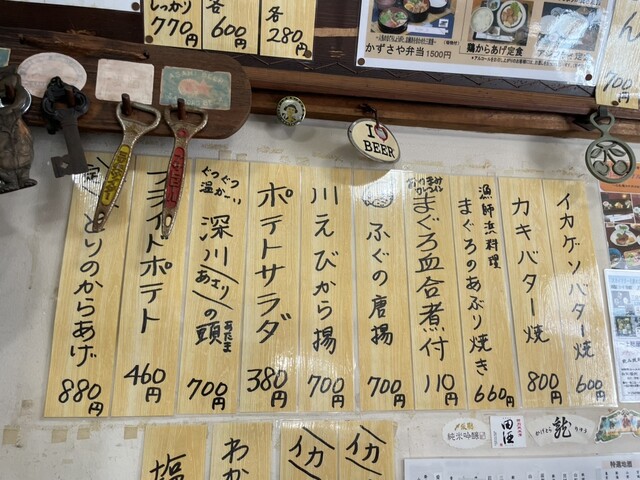 しっかり
770円
各
600円
各
280円
かずさや弁当 1500円
鶏からあげ定食
700円
I
BEER
イカゲソバター焼
600円
カキバター焼
800円
漁師浜料理
まぐろのあぶり焼き
660円
まぐろ血合煮付
110円
ふぐの唐揚
700円
川えびから揚
700円
ポテトサラダ
380円
ぐつぐつ
温かーい
深川(あさり)の頭
あたま
700円
フライドポテト
460円
とりのからあげ
880円
純米吟醸
田酒
龍
イカ
イカ
わか
塩
特選地酒